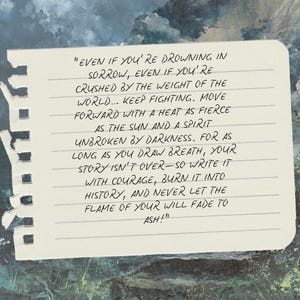 "EVEN IF YOU'RE DROWNING IN
SORROW, EVEN IF YOU'RE
CRUSHED BY THE WEIGHT OF THE
WORLD... KEEP FIGHTING. MOVE
FORWARD WITH A HEAT AS FIERCE
AS THE SUN AND A SPIRIT
UNBROKEN BY DARKNESS. FOR AS
LONG AS YOU DRAW BREATH, YOUR
STORY ISN'T OVER—SO WRITE IT
WITH COURAGE, BURN IT INTO
HISTORY, AND NEVER LET THE
FLAME OF YOUR WILL FADE TO
ASH!"